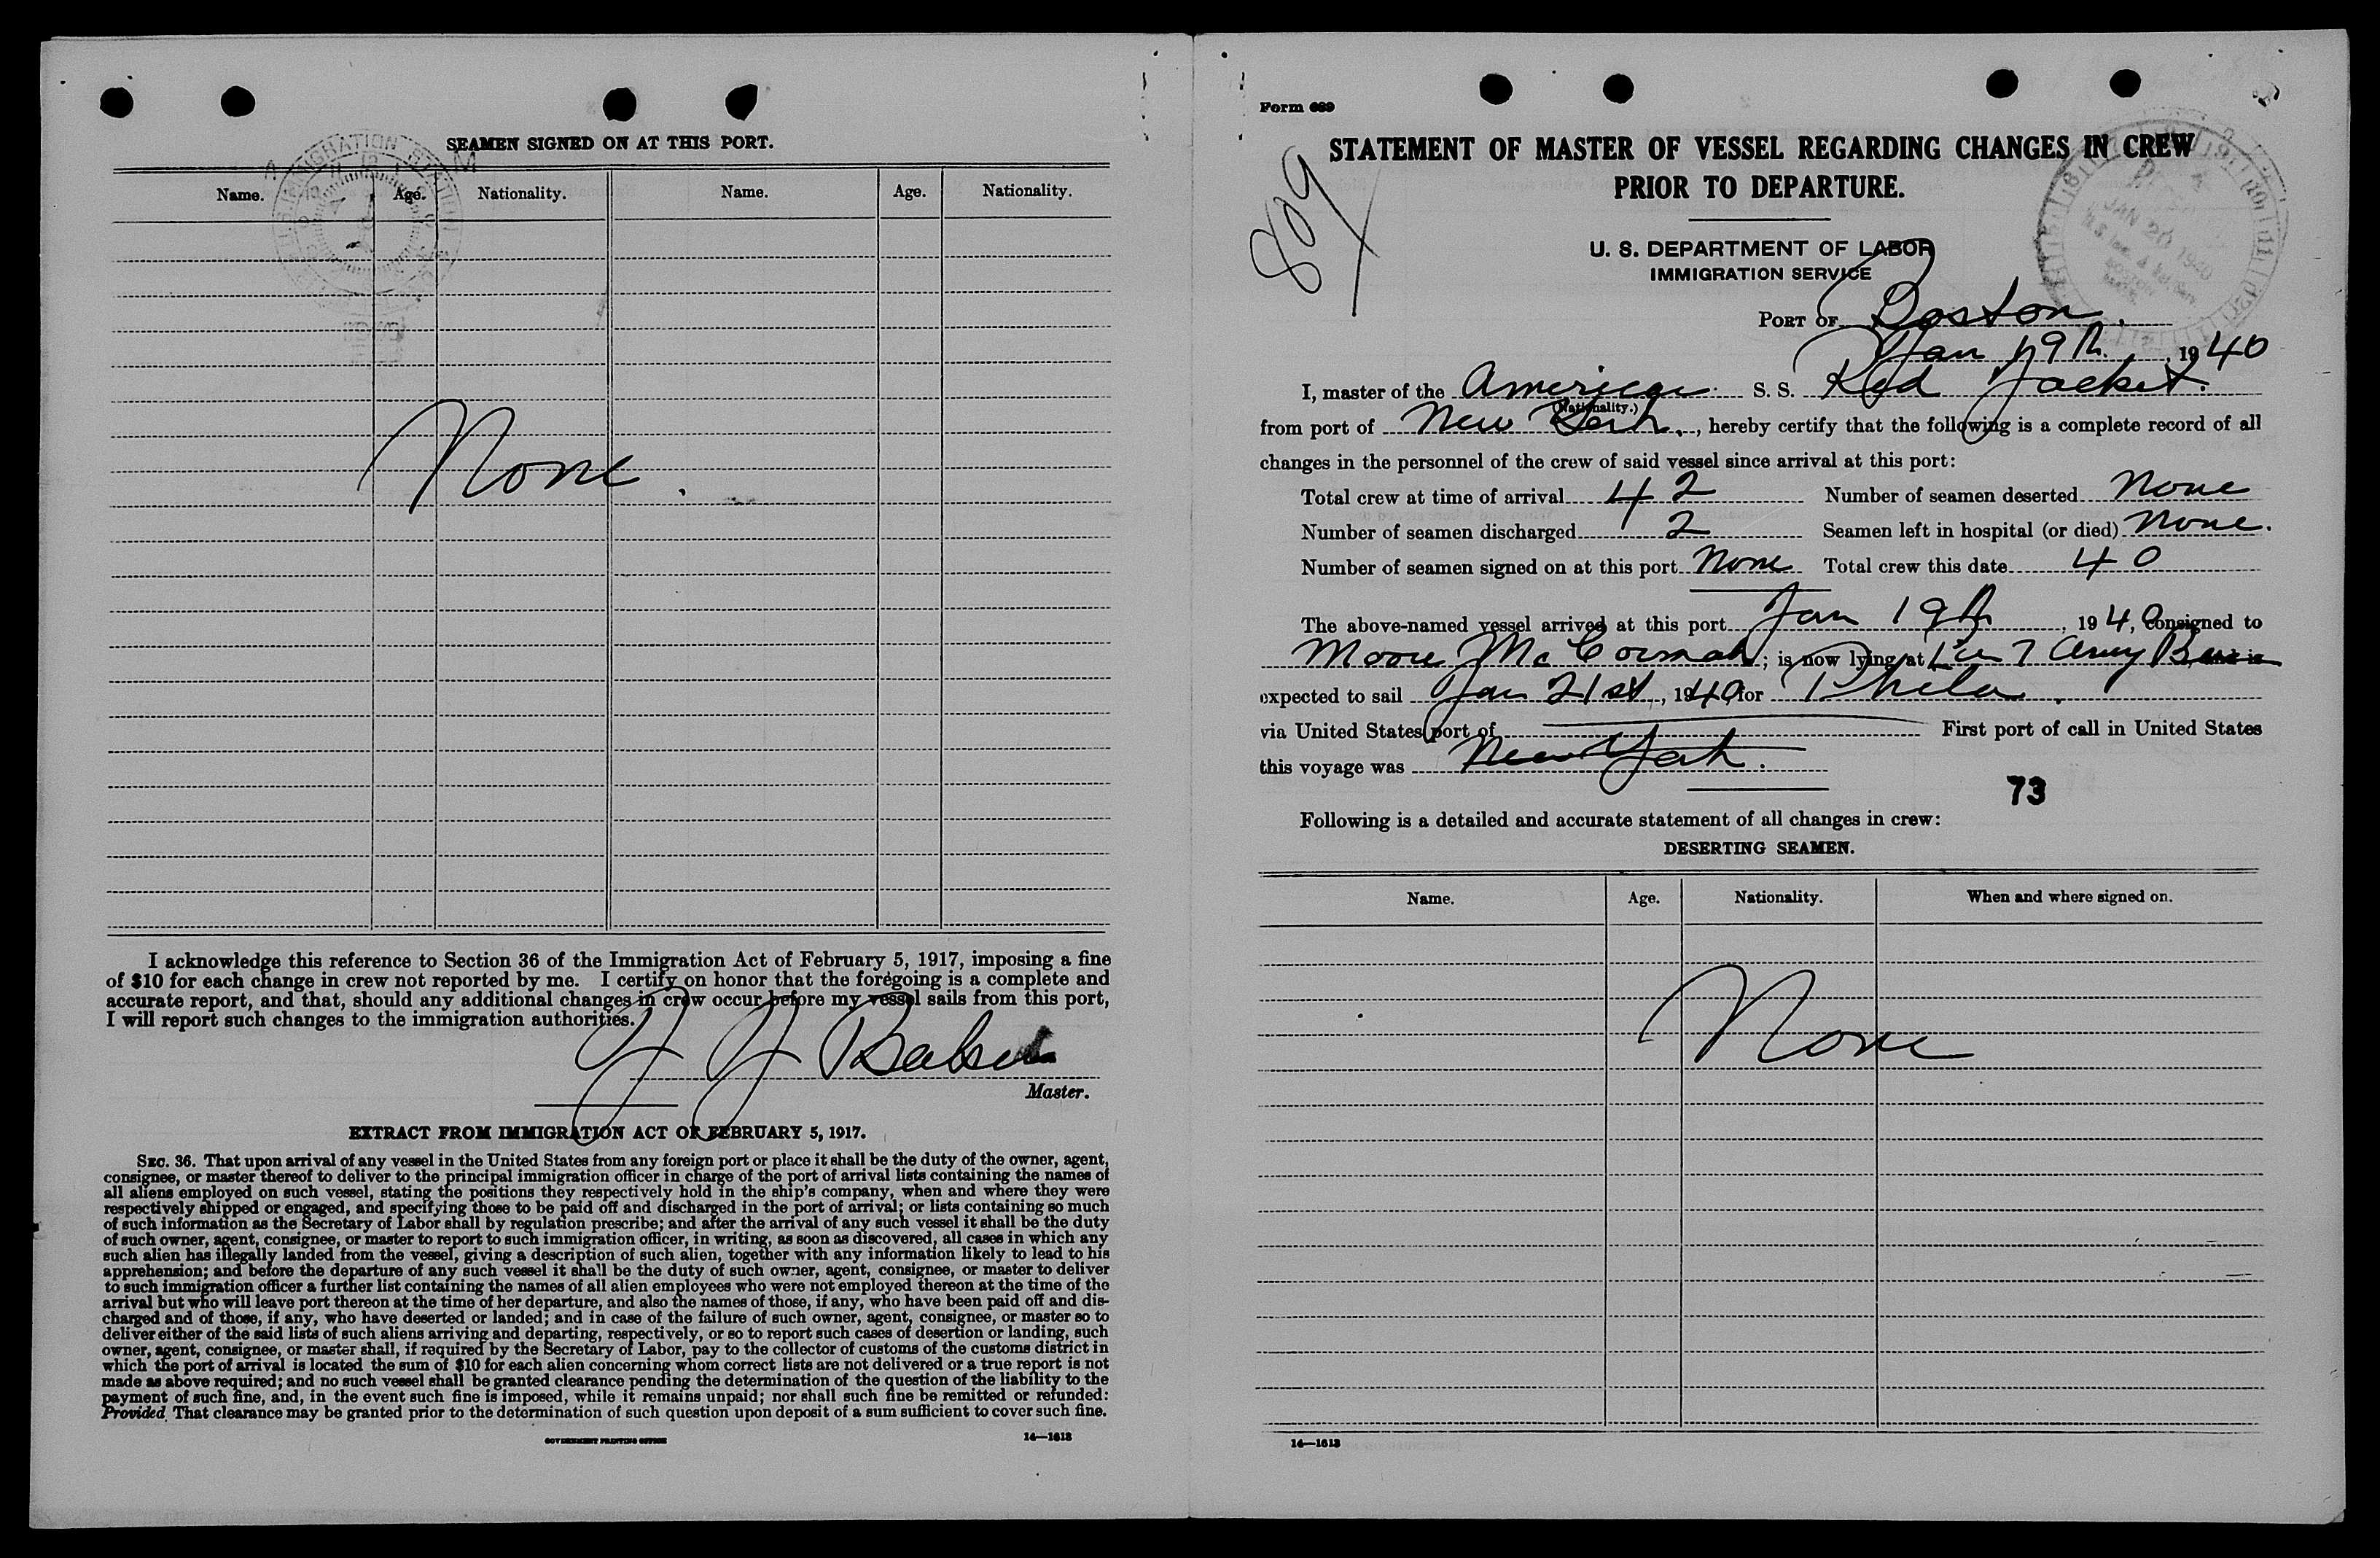 SEAMEN SIGNED ON AT THIS PORT.
Name. Age. Nationality. Name. Age. Nationality.
None.
I acknowledge this reference to Section 36 of the Immigration Act of February 5, 1917, imposing a fine
of $10 for each change in crew not reported by me. I certify on honor that the foregoing is a complete and
accurate report, and that, should any additional changes in crew occur before my vessel sails from this port,
I will report such changes to the immigration authorities.
Master.
EXTRACT FROM IMMIGRATION ACT OF FEBRUARY 5, 1917.
SEC. 36. That upon arrival of any vessel in the United States from any foreign port or place it shall be the duty of the owner, agent,
consignee, or master thereof to deliver to the principal immigration officer in charge of the port of arrival lists containing the names of
all aliens employed on such vessel, stating the positions they respectively hold in the ship's company, when and where they were
respectively shipped or engaged, and specifying those to be paid off and discharged in the port of arrival; or lists containing so much
of such information as the Secretary of Labor shall by regulation prescribe; and after the arrival of any such vessel it shall be the duty
of such owner, agent, consignee, or master to report to such immigration officer, in writing, as soon as discovered, all cases in which any
such alien has illegally landed from the vessel, giving a description of such alien, together with any information likely to lead to his
apprehension; and before the departure of any such vessel it shall be the duty of such owner, agent, consignee, or master to deliver
to such immigration officer a further list containing the names of all alien employees who were not employed thereon at the time of the
arrival but who will leave port thereon at the time of her departure, and also the names of those, if any, who have been paid off and dis-
charged and of those, if any, who have deserted or landed; and in case of the failure of such owner, agent, consignee, or master so to
deliver either of the said lists of such aliens arriving and departing, respectively, or so to report such cases of desertion or landing, such
owner, agent, consignee, or master shall, if required by the Secretary of Labor, pay to the collector of customs of the customs district in
which the port of arrival is located the sum of $10 for each alien concerning whom correct lists are not delivered or a true report is not
made as above required; and no such vessel shall be granted clearance pending the determination of the question of the liability to the
payment of such fine, and, in the event such fine is imposed, while it remains unpaid; nor shall such fine be remitted or refunded:
Provided, That clearance may be granted prior to the determination of such question upon deposit of a sum sufficient to cover such fine.
GOVERNMENT PRINTING OFFICE 14—1613
Form 689
809
STATEMENT OF MASTER OF VESSEL REGARDING CHANGES IN CREW
PRIOR TO DEPARTURE.
JAN 20 1940
U. S. DEPARTMENT OF LABOR
IMMIGRATION SERVICE
PORT OF Boston.
Jan 19th, 1940
I, master of the American S. S. Red Jacket.
(Nationality.)
from port of New York, hereby certify that the following is a complete record of all
changes in the personnel of the crew of said vessel since arrival at this port:
Total crew at time of arrival 42 Number of seamen deserted None
Number of seamen discharged 2 Seamen left in hospital (or died) None.
Number of seamen signed on at this port None Total crew this date 40
The above-named vessel arrived at this port Jan 19th, 1940, consigned to
Moore McCormack; is now lying at Pier 7 Army Base
expected to sail Jan 21st, 1940 for Phila.
via United States port of First port of call in United States
this voyage was New York.
73
Following is a detailed and accurate statement of all changes in crew:
DESERTING SEAMEN.
Name. Age. Nationality. When and where signed on.
None
14—1613